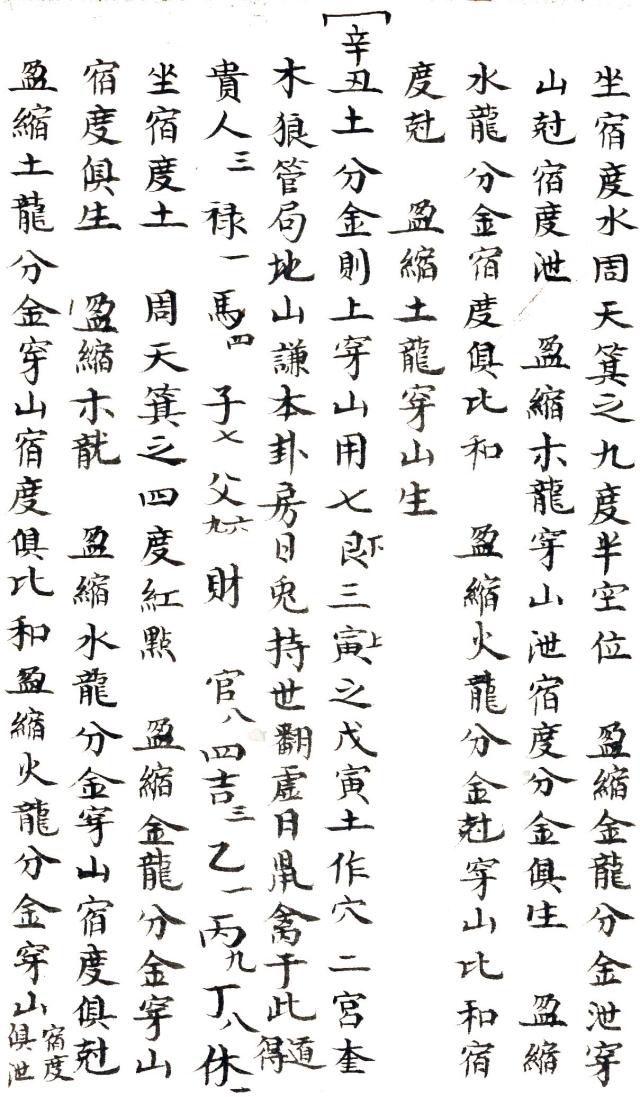 坐宿度水周天箕之九度半空位　盈縮金龍分金泄穿
山尅宿度泄　盈縮木龍穿山泄宿度分金俱生　盈縮
水龍分金宿度俱比和　盈縮火龍分金尅穿山比和宿
度尅　盈縮土龍穿山生
辛丑土分金則上穿山用七艮下三寅上之戊寅土作穴二宮奎
木狼管局地山謙本卦房日兎持世翻虛日鼠禽于此得道
貴人三祿一馬四子七父六九財　官八四吉三乙一丙九丁八休一
坐宿度土　周天箕之四度紅點　盈縮金龍分金穿山
宿度俱生　盈縮木龍　盈縮水龍分金穿山宿度俱尅
盈縮土龍分金穿山宿度俱比和盈縮火龍分金穿山宿度俱泄